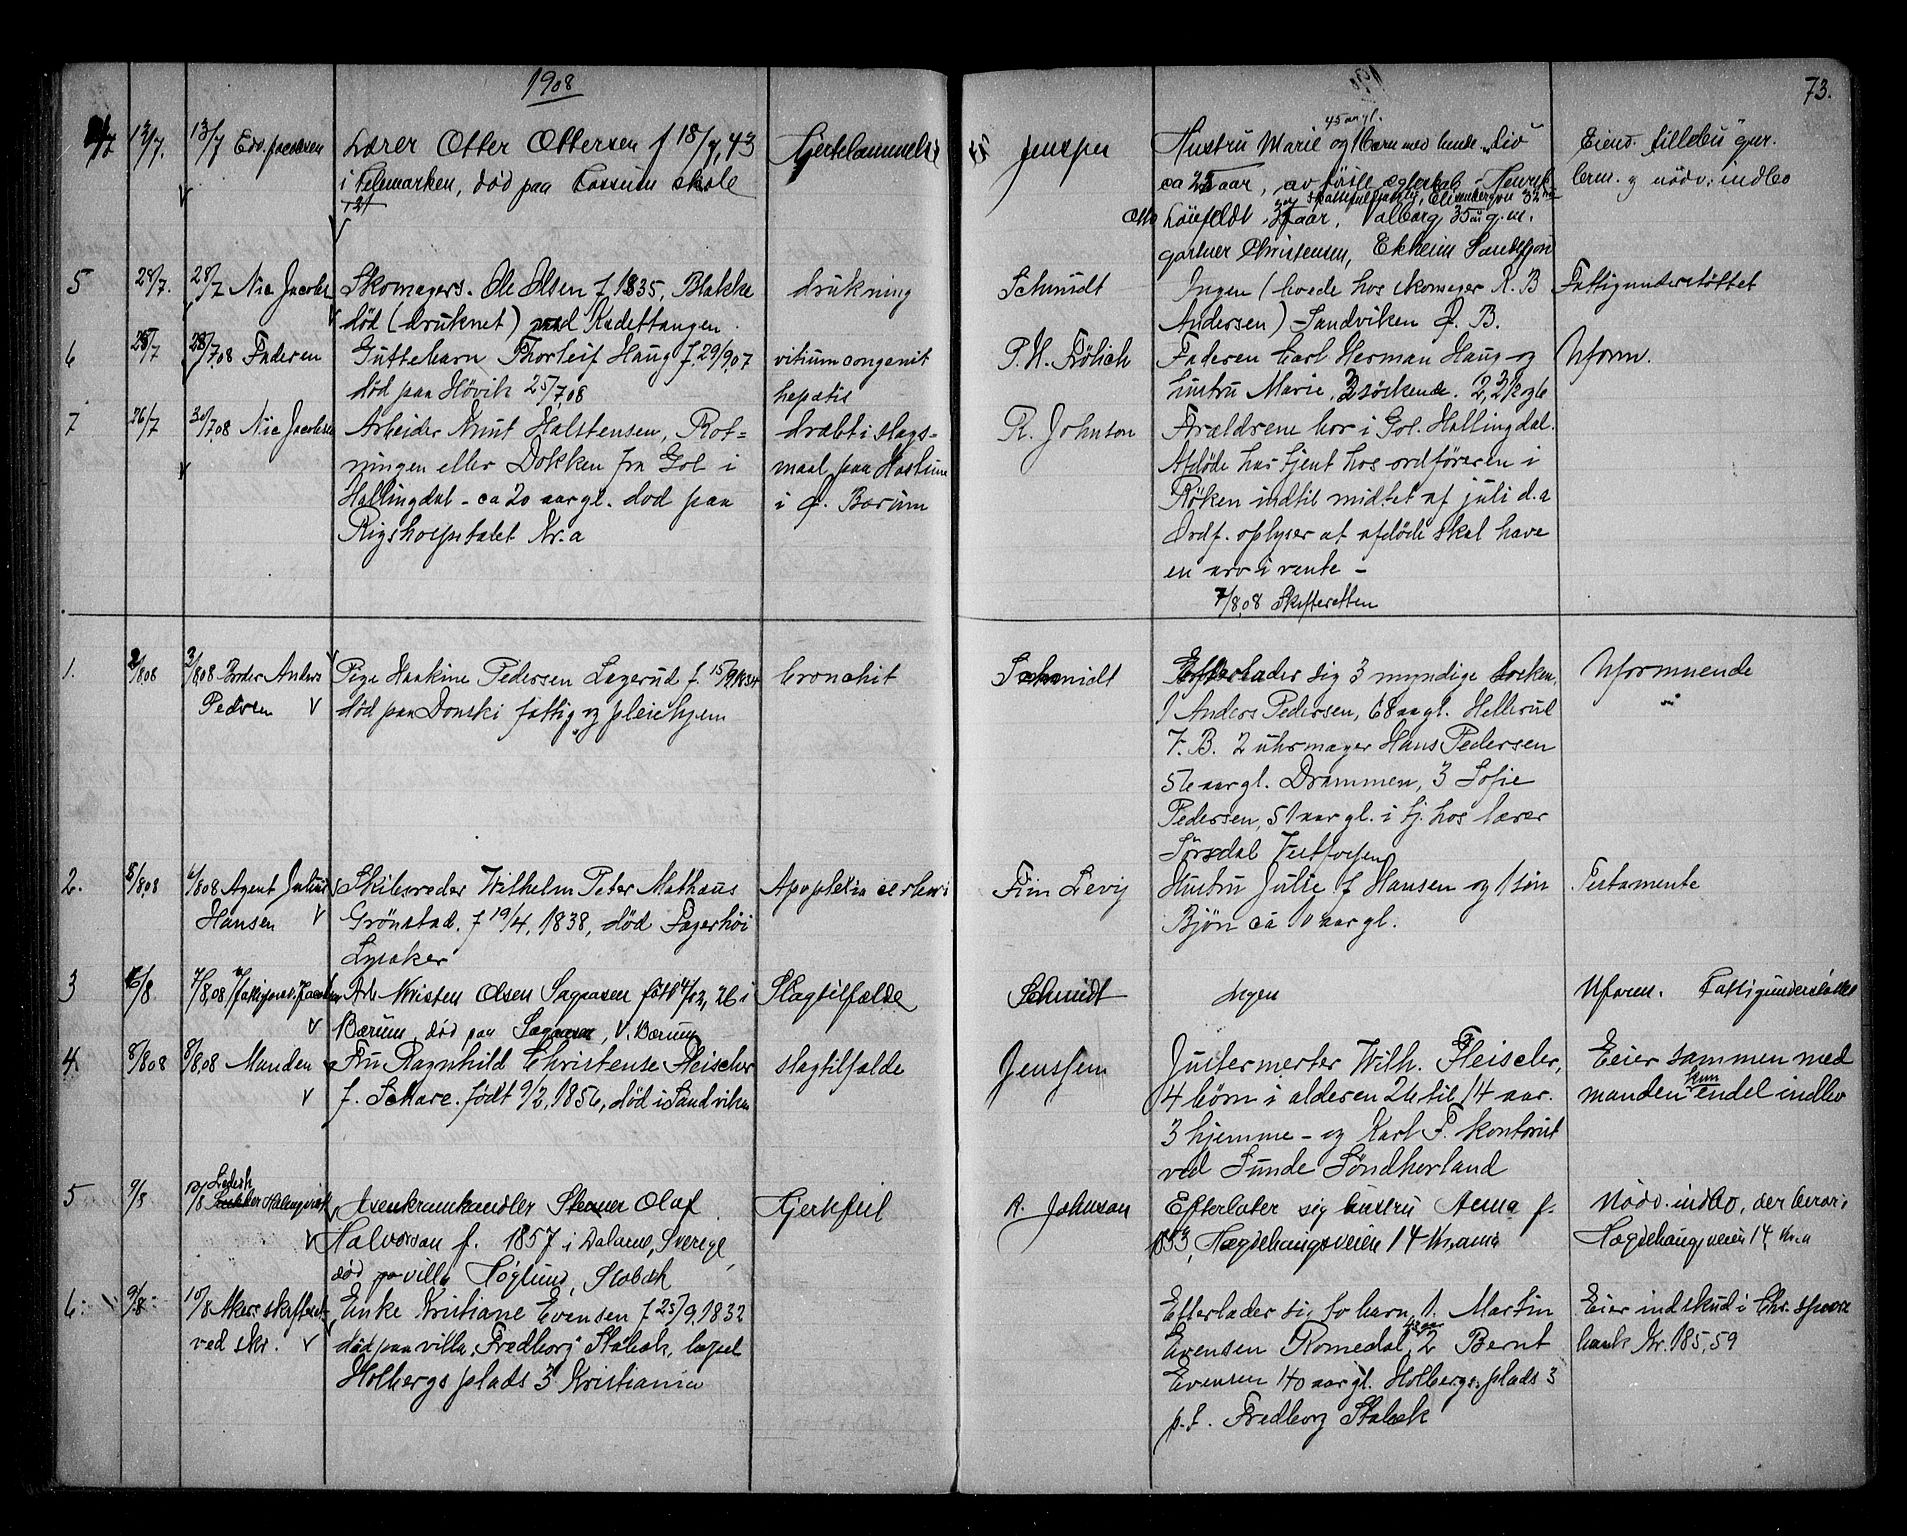 1908
73.
13/7. 13/7 Edv. Jacobsen Lærer Otter Ottersen f 18/7, 43 Hjertelammelse Jenssen Hustru Marie og 1 barn med hende Liv Eiend. Lillebu gur.
45 aar gl.
i Telemarken, død paa Fossum skole ca 25 aar, av første ægteskab - Henryk brm. g nødv. indbo
Løvfeldt aar, Valborg 35 g.m.
gartner Christensen, Ekheim Sandefjord
5 28/7. 28/7 Nic Jacobsen Skomagers. Ole Olsen f 1835, Blakke drukning Schmidt Ingen (boede hos skomager R. B Fattigunderstøttet
død (druknet) ved Kadettangen. Andersen) Sandviken Ø. B.
6 25/7 28/7,08 Faderen Guttebarn Thorleif Haug f. 29/9,07 vitium congenit P. H. Frölich Faderen Carl Herman Haug og Uform.
død paa Høvik 25/7,08 hepatis hustru Marie, 3 søskende. 2, 3 1/2 og 6
7 26/7 30/7,08 Nic Jacobsen Arbeider Knut Halstensen, Rot= dræbt i slags- R. Johnson Forældrene bor i Gol. Hallingdal.
ningen eller Dokken fra Gol i maal paa Haslum Afdøde har tjent hos ordføreren i
Hallingdal - ca 20 aar gl. død paa i Ø. Bærum Røken indtil midtet af juli d.a
Rigshospitalet Kr.a Ordf. oplyser at afdøde skal have
en arv i vente -
7/8,08 Skifteretten
1. 2/8,08 3/8,08 Broder Anders Pige Haakine Pedersen Lagerud f. 15/9 1834 bronchit Schmidt Efterlader sig 3 myndige søsken, Uformuende
Pedersen V død paa Donski fattig og pleiehjem 1 Anders Pedersen, 68 aar gl. Hellerud
V. B. 2 uhrmager Hans Pedersen
56 aar gl. Drammen, 3 Sofie
Pedersen, 51 aar gl. i tj. hos lærer
Sørsdal Vestfossen
2. 5/8,08 6/8,08 Agent Julius Skibsreder Wilhelm Peter Mathæus Apoplexia cerebri Finn Levy Hustru Julie f Hansen og 1 søn Testamente
Hansen V Grønstad. f 19/4, 1838, død Fagerhøi Bjøn ca 10 aar gl.
Lysaker
3 6/8. 7/8,08 Jacobsen Arb. Kristen Olsen Sagaasen født 4/12, 26 i Slagtilfælde Schmidt Ingen Uform. Fattigunderstøttet
V Bærum, død paa Sagaasen, V. Bærum
4 8/8 08 8/8,08 Manden Fru Ragnhild Christense Fleischer slagtilfælde Jenssen Justermester Wilh. Fleischer, Eier sammen med
V f. Schare. født 9/2, 1856, død i Sandviken 4 børn i alderen 26 til 14 aar. manden kun endel indbo
3 hjemme - og Karl F. kontorist
ved Sunde Søndhorland
5 9/8 Isenkramhandler Steener Olaf Hjertefeil R. Johnson Efterlater sig hustru Anna f. Nødv. indbo, der beror i
V Halvorsen f. 1857 i Dalarne, Sverige, 1853, Hægdehaugsveien 14 Kr.ania Hægdehaugsveien 14, Kr.a
død paa villa Höglund, Stabæk
6: 9/8: 10/8 Akers skifteret Enke Kristiane Evensen f 25/9, 1832 Efterlader sig to barn, 1. Martin Eier indskud i Chr. spare
ved skr. V død paa villa "Fredborg" Stabæk, bopæl Evensen Romedal, 2 Bernt bank Kr. 185,59
Holbergs plads 3 Kristiania Evensen 40 aar gl. Holbergs plads 3
p. t. Fredborg Stabæk